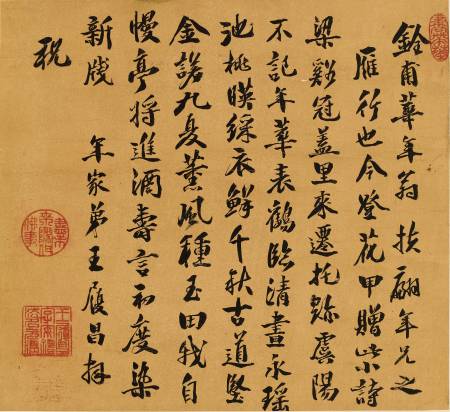 銓甫華年翁 扶翮年兄之
雁行也今登花甲贈此小詩
梁谿冠蓋里來遷托跡虞陽
不記年華表鶴臨清晝永瑤
池桃暎綵衣鮮千秋古道堅
金諾九夏薰風種玉田我自
幔亭將進酒壽言初度染
新牋 年家弟王履昌拜
祝